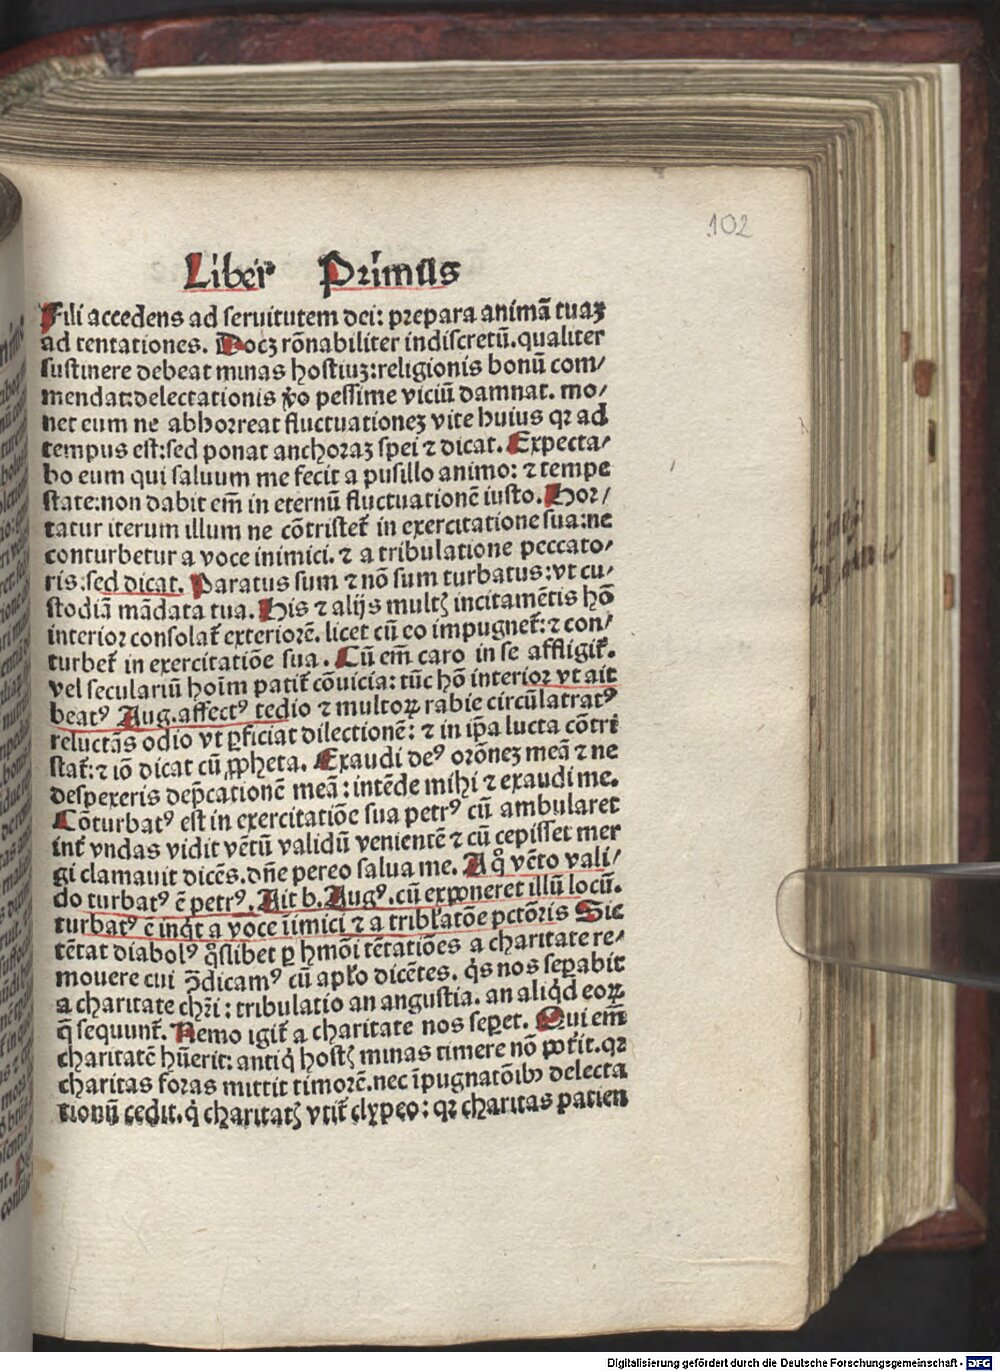 102
Liber Primus
Fili accedens ad seruitutem dei: prepara animā tuaꝫ
ad tentationes. Docꝫ rōnabiliter indiscretū. qualiter
sustinere debeat minas hostiuꝫ: religionis bonū com/
mendat: delectationis ꝟo pessime viciū damnat. mo/
net eum ne abhorreat fluctuationeꝫ vite huius qꝛ ad
tempus est: sed ponat anchoraꝫ spei ⁊ dicat. Expecta/
bo eum qui saluum me fecit a pusillo animo: ⁊ tempe
state: non dabit em̄ in eternū fluctuationē iusto. Hor/
tatur iterum illum ne cōtristet᷑ in exercitatione sua: ne
conturbetur a voce inimici. ⁊ a tribulatione peccato/
ris: sed dicat. Paratus sum ⁊ nō sum turbatus: vt cu/
stodiā mādata tua. His ⁊ alijs multꝭ incitamētis hō
interior consolat᷑ exteriorē. licet cū eo impugnet᷑: ⁊ con/
turbet᷑ in exercitatiōe sua. Cū em̄ caro in se affligit᷑.
vel seculariū hoīm patit᷑ cōuicia: tūc hō interior vt ait
beatꝰ Aug. affectꝰ tedio ⁊ multoꝝ rabie circūlatratꝰ
reluctās odio vt ꝑficiat dilectionē: ⁊ in ip̄a lucta cōtri
stat᷑: ⁊ iō dicat cū ꝓpheta. Exaudi deꝰ orōneꝫ meā ⁊ ne
despexeris dep̄cationē meā: intēde mihi ⁊ exaudi me.
Cōturbatꝰ est in exercitatiōe sua petrꝰ cū ambularet
int᷑ vndas vidit vētū validū venientē ⁊ cū cepisset mer
gi clamauit dicēs. dn̄e pereo salua me. A qͦ vēto vali/
do turbatꝰ ē petrꝰ. Ait b. Augꝰ. cū exponeret illū locū.
turbatꝰ ē inqͥt a voce iīmici ⁊ a tribłatōe pctōris Sic
tētat diabolꝰ qͦslibet ꝑ hmōi tētatiōes a charitate re/
mouere cui dicamꝰ cū apło dicētes. qͥs nos seꝑabit
a charitate chꝛi: tribulatio an angustia. an aliqͥd eoꝝ
q̄ sequunt᷑. Nemo igit᷑ a charitate nos seꝑet. Qui em̄
charitatē hūerit: antiqͥ hostꝭ minas timere nō pot᷑it. qꝛ
charitas foras mittit timorē. nec īpugnatōibꝰ delecta
tionū cedit. qͥ charitatꝭ vtit᷑ clypeo: qꝛ charitas patien
Digitalisierung gefördert durch die Deutsche Forschungsgemeinschaft - DFG